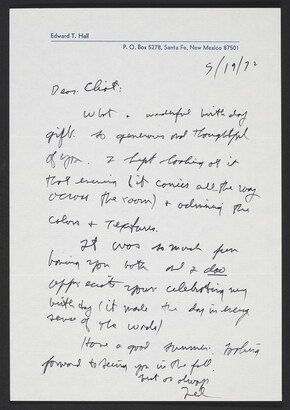 Edward T. Hall
P. O. Box 5278, Santa Fe, New Mexico 87501
5/19/72
Dear
What a wonderful birthday
gift. So generous and thoughtful
of you. I kept looking at it
that evening (it carries all the way
across the room) + admiring the
colors + textures.
It was so much fun
having you both and I do
appreciate your celebrating my
birthday (it made the day in every
sense of the word)
Have a good summer. Looking
forward to seeing you in the fall.
as always